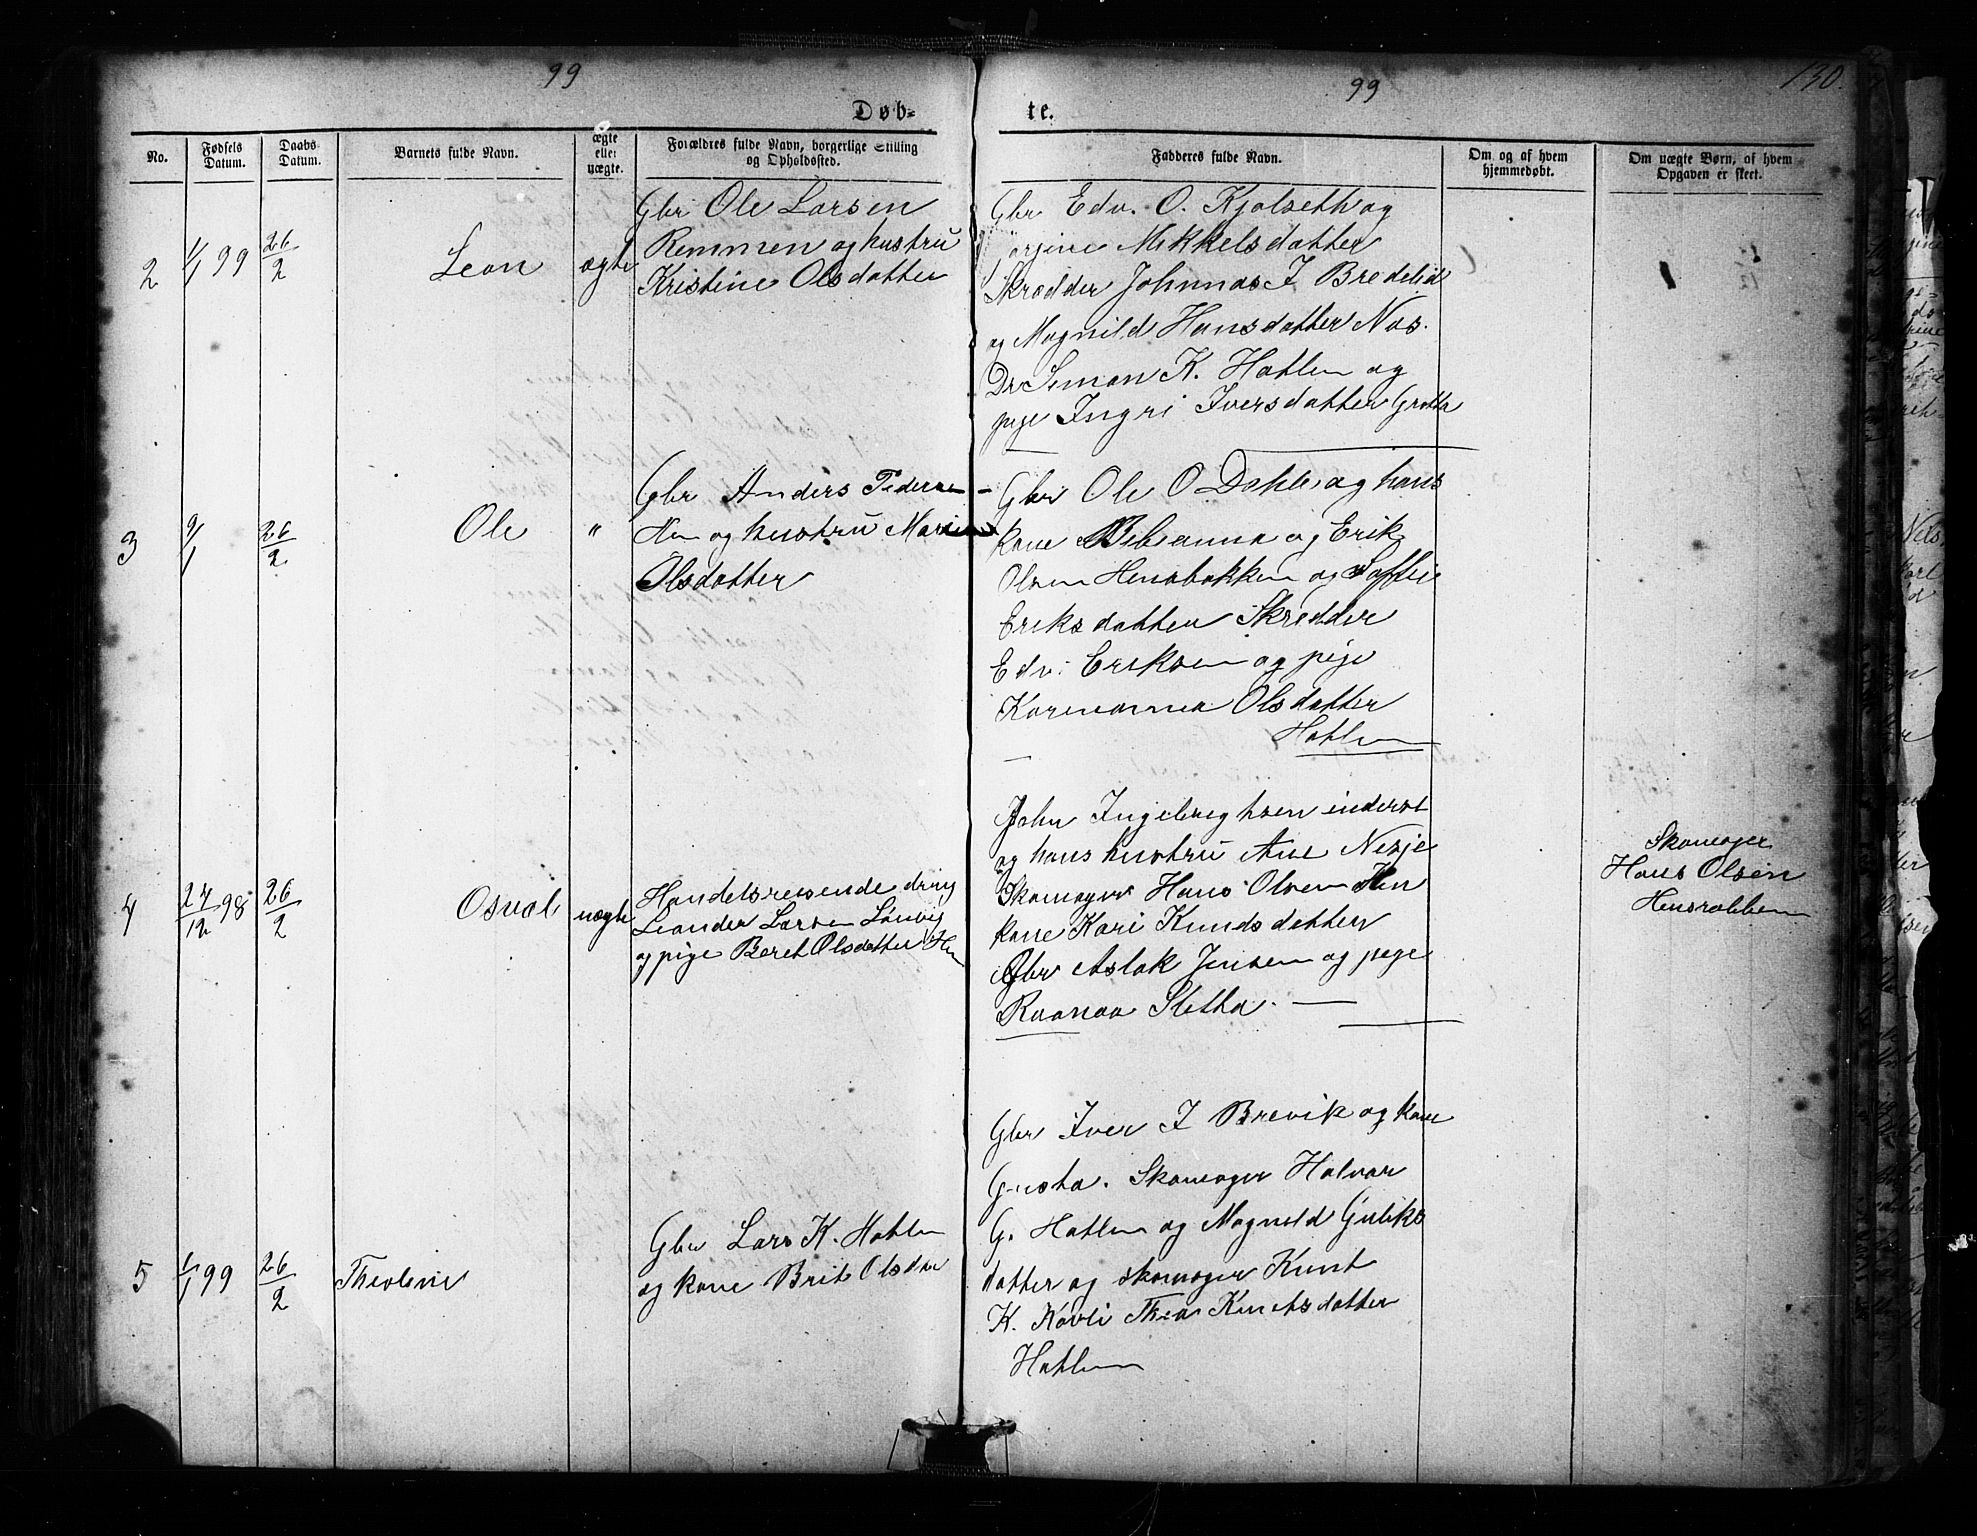 99
99
130.
Døb-
te.
No.
Fødsels Datum.
Daabs Datum.
Barnets fulde Navn.
ægte eller uægte.
Forældres fulde Navn, borgerlige Stilling og Opholdssted.
Fadderes fulde Navn.
Om og af hvem hjemmedøbt.
Om uægte Børn, af hvem Opgaven er skeet.
2
1/1 99
26/2
Leon
ægte
Gbr Ole Larsen
Remmen og hustru
Kristine Olsdatter
Gbr Edv. O. Kjølseth og
Mikkelsdatter
Skrædder Johnnas I Bredelid
og Magnild Hansdatter Nas.
Dr Simon K. Hatlen og
pige Ingri Iversdatter Grøtta
3
9/1
26/2
Ole
"
Gbr Anders Peder
Hen og hustru
Olsdatter
Gbr Ole O Dahle og hans
kone Bebeanna og Erik
Olsen Hensbakken og Soffie
Eriksdatter Skredder
Edv. Eriksen og pige
Karenanna Olsdatter
Hatlen
4
27/12 98
26/2
Osval
uægte
Handelsreisende dreng
Leander Larsen Løvig
og pige Beret Olsdatter Hen
John Ingebreghtsen inderst
og hans hustru Ane Nesje
Skomager Hans Olsen Hen
kone Kari Knudsdatter
Gbr Aslak Jensen og pige
Raanaa Sletta.
Skomager
Hans Olsen
5
1/1 99
26/2
Theoline
Gbr Lars K. Hatlen
og kone Brit Olsdtr
Gbr Iver I Brevik og kone
Gusta. Skomager Halvar
G. Hatlen og Magnild Guliks
datter og skomager Knut
K. Røvli Thea Knutsdatter
Hatlen